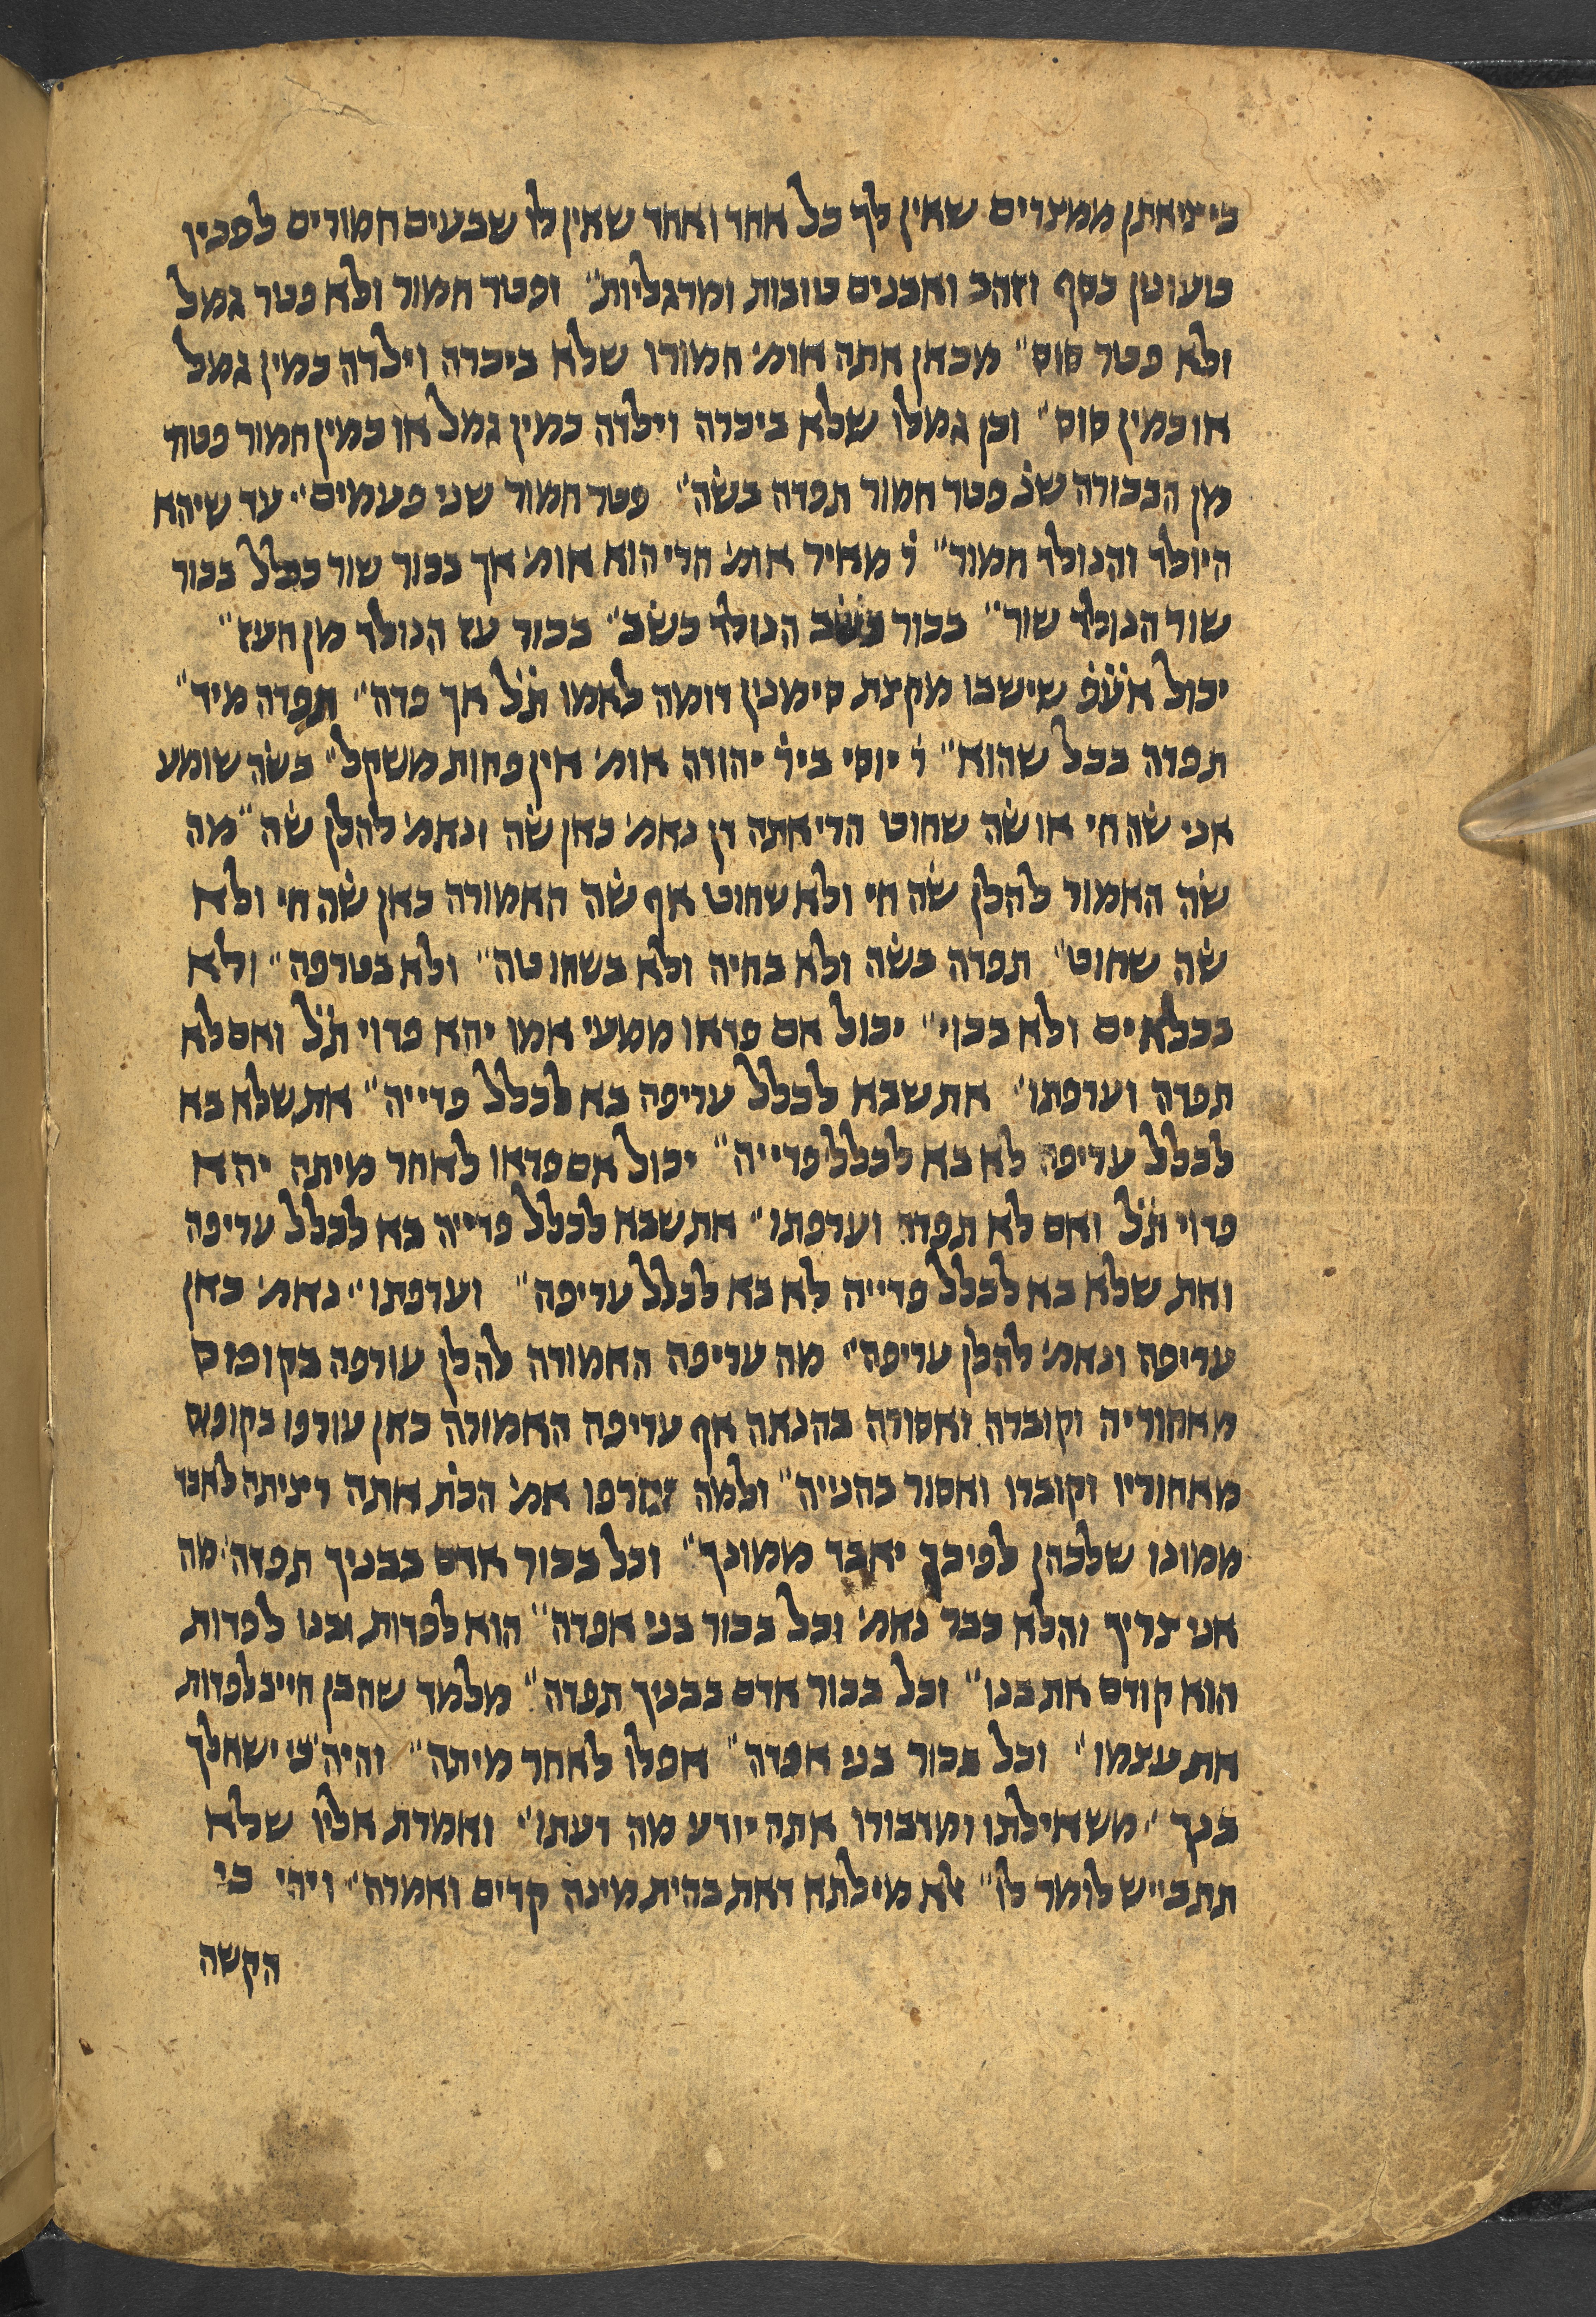 ביציאתן ממצרים שאין לך כל אחד ואחד שאין לו שבעים חמורים לפכין
טעונין כסף וזהב ואבנים טובות ומרגליות״ ופטר חמור ולא פטר גמל
ולא פטר סוס״ מכאן אתה אומ׳ חמורו שלא ביכרה וילדה כמין גמל
או כמין סוס״ וכן גמלו שלא ביכרה וילדה כמין גמל או כמין חמור פטור
מן הבכורה שנ׳ פטר חמור תפדה בשה״ פטר חמור שני פעמים״ עד שיהא
היולד והנולד חמור״ ר׳ מאיר אומ׳ הרי הוא אומ׳ אך בכור שור בכלל בכור
שור הנולד שור״ בכור כשב הנולד כשב״ בכור עז הנולד מן העז״
יכול אע״פ שיש בו מקצת סימנין דומה לאמו ת״ל אך פדה״ תפדה מיד״
תפדה בכל שהוא״ ר׳ יוסי ביר׳ יהודה אומ׳ אין פחות משקל״ בשה שומע
אני שה חי או שה שחוט הרי אתה דן נאמ׳ כאן שה ונאמ׳ להלן שה״ מה
שה האמור להלן שה חי ולא שחוט אף שה האמורה כאן שה חי ולא
שה שחוט״ תפדה בשה ולא בחיה ולא בשחוטה״ ולא בטרפה״ ולא
בכלאים ולא בכוי״ יכול אם פדאו ממעי אמו יהא פדוי ת״ל ואם לא
תפדה וערפתו״ את שבא לכלל עריפה בא לכלל פדייה״ את שלא בא
לכלל עריפה לא בא לכלל פדייה״ יכול אם פדאו לאחר מיתה יהא
פדוי ת״ל ואם לא תפדה וערפתו״ את שבא לכלל פדייה בא לכלל עריפה
ואת שלא בא לכלל פדייה לא בא לכלל עריפה״ וערפתו״ נאמ׳ כאן
עריפה ונאמ׳ להלן עריפה״ מה עריפה האמורה להלן עורפה בקופיס
מאחוריה וקוברה ואסורה בהנאה אף עריפה האמורה כאן עורפו בקופיס
מאחוריו וקוברו ואסור בהנייה״ ולמה אמ׳ הכת׳ אתה רציתה לאבד
ממונו שלכהן לפיכך יאבד ממונך״ וכל בכור אדם בבניך תפדה״ מה
אני צריך והלא כבר נאמ׳ וכל בכור בני אפדה״ הוא לפדות ובנו לפדות
הוא קודם את בנו״ וכל בכור אדם בבניך תפדה״ מלמד שהבן חייב לפדות
את עצמו״ וכל בכור בני אפדה״ אפלו לאחר מיתה״ והיה כי ישאלך
בנך״ משאילתו ומדבורו אתה יודע מה דעתו״ ואמרת אליו שלא
תתבייש לומר לו״ לא מילתא דאת בהית מינה קדים ואמרה״ ויהי כי
הקשה